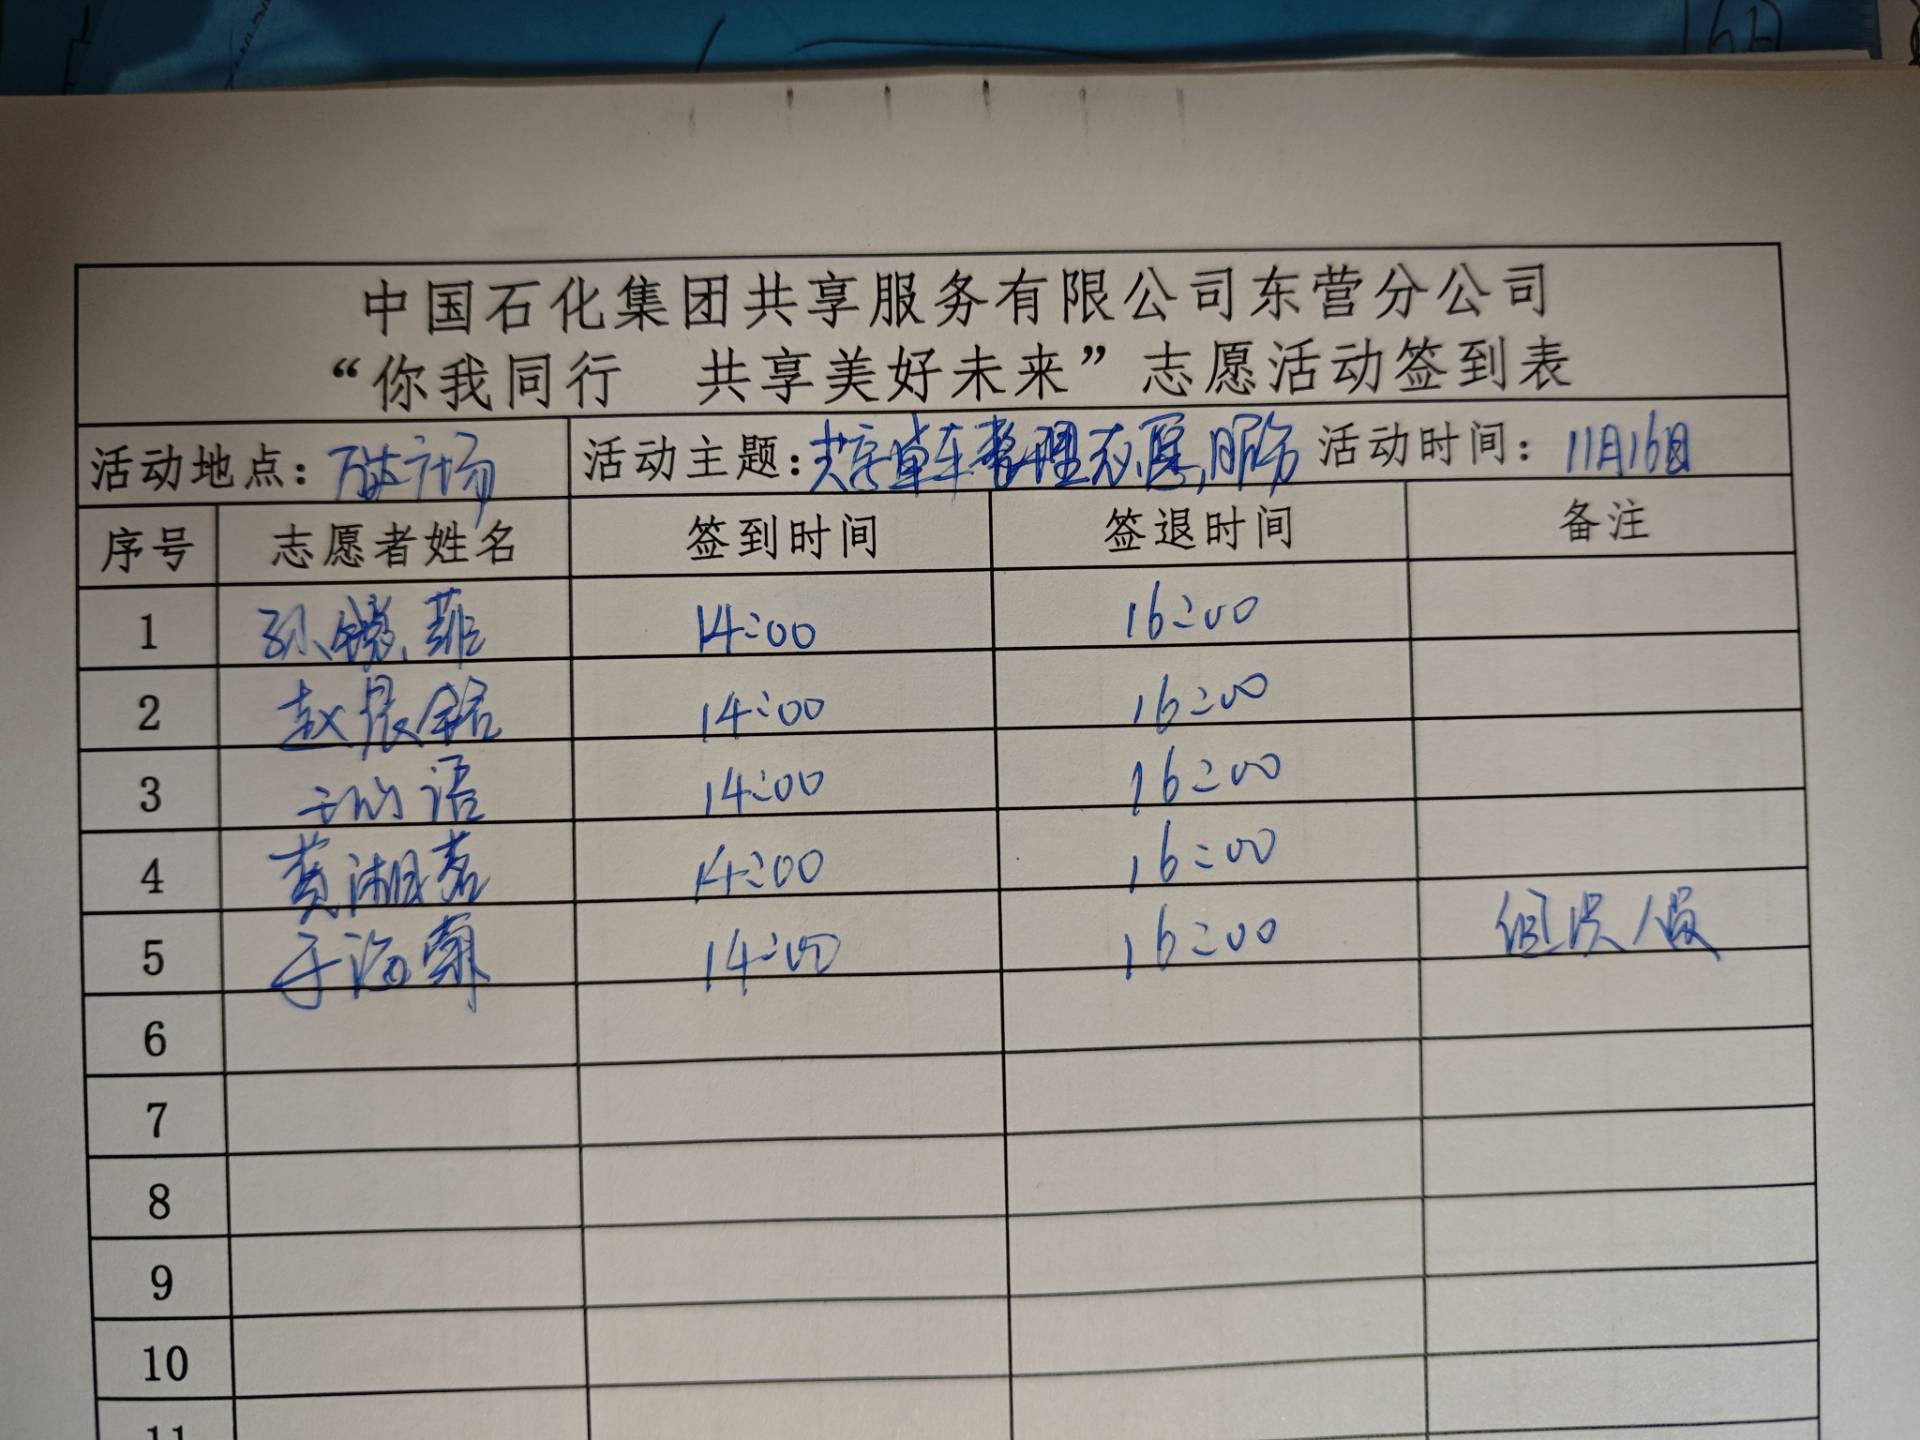 16日
中国石化集团共享服务有限公司东营分公司
“你我同行 共享美好未来”志愿活动签到表
活动地点：万达广场 活动主题：共享单车整理志愿服务 活动时间：11月16日
序号 志愿者姓名 签到时间 签退时间 备注
1 孙 菲 14:00 16:00
2 赵晨铭 14:00 16:00
3 语 14:00 16:00
4 黄湘茗 14:00 16:00
5 于海朝 14:00 16:00 组织人员
6
7
8
9
10
11